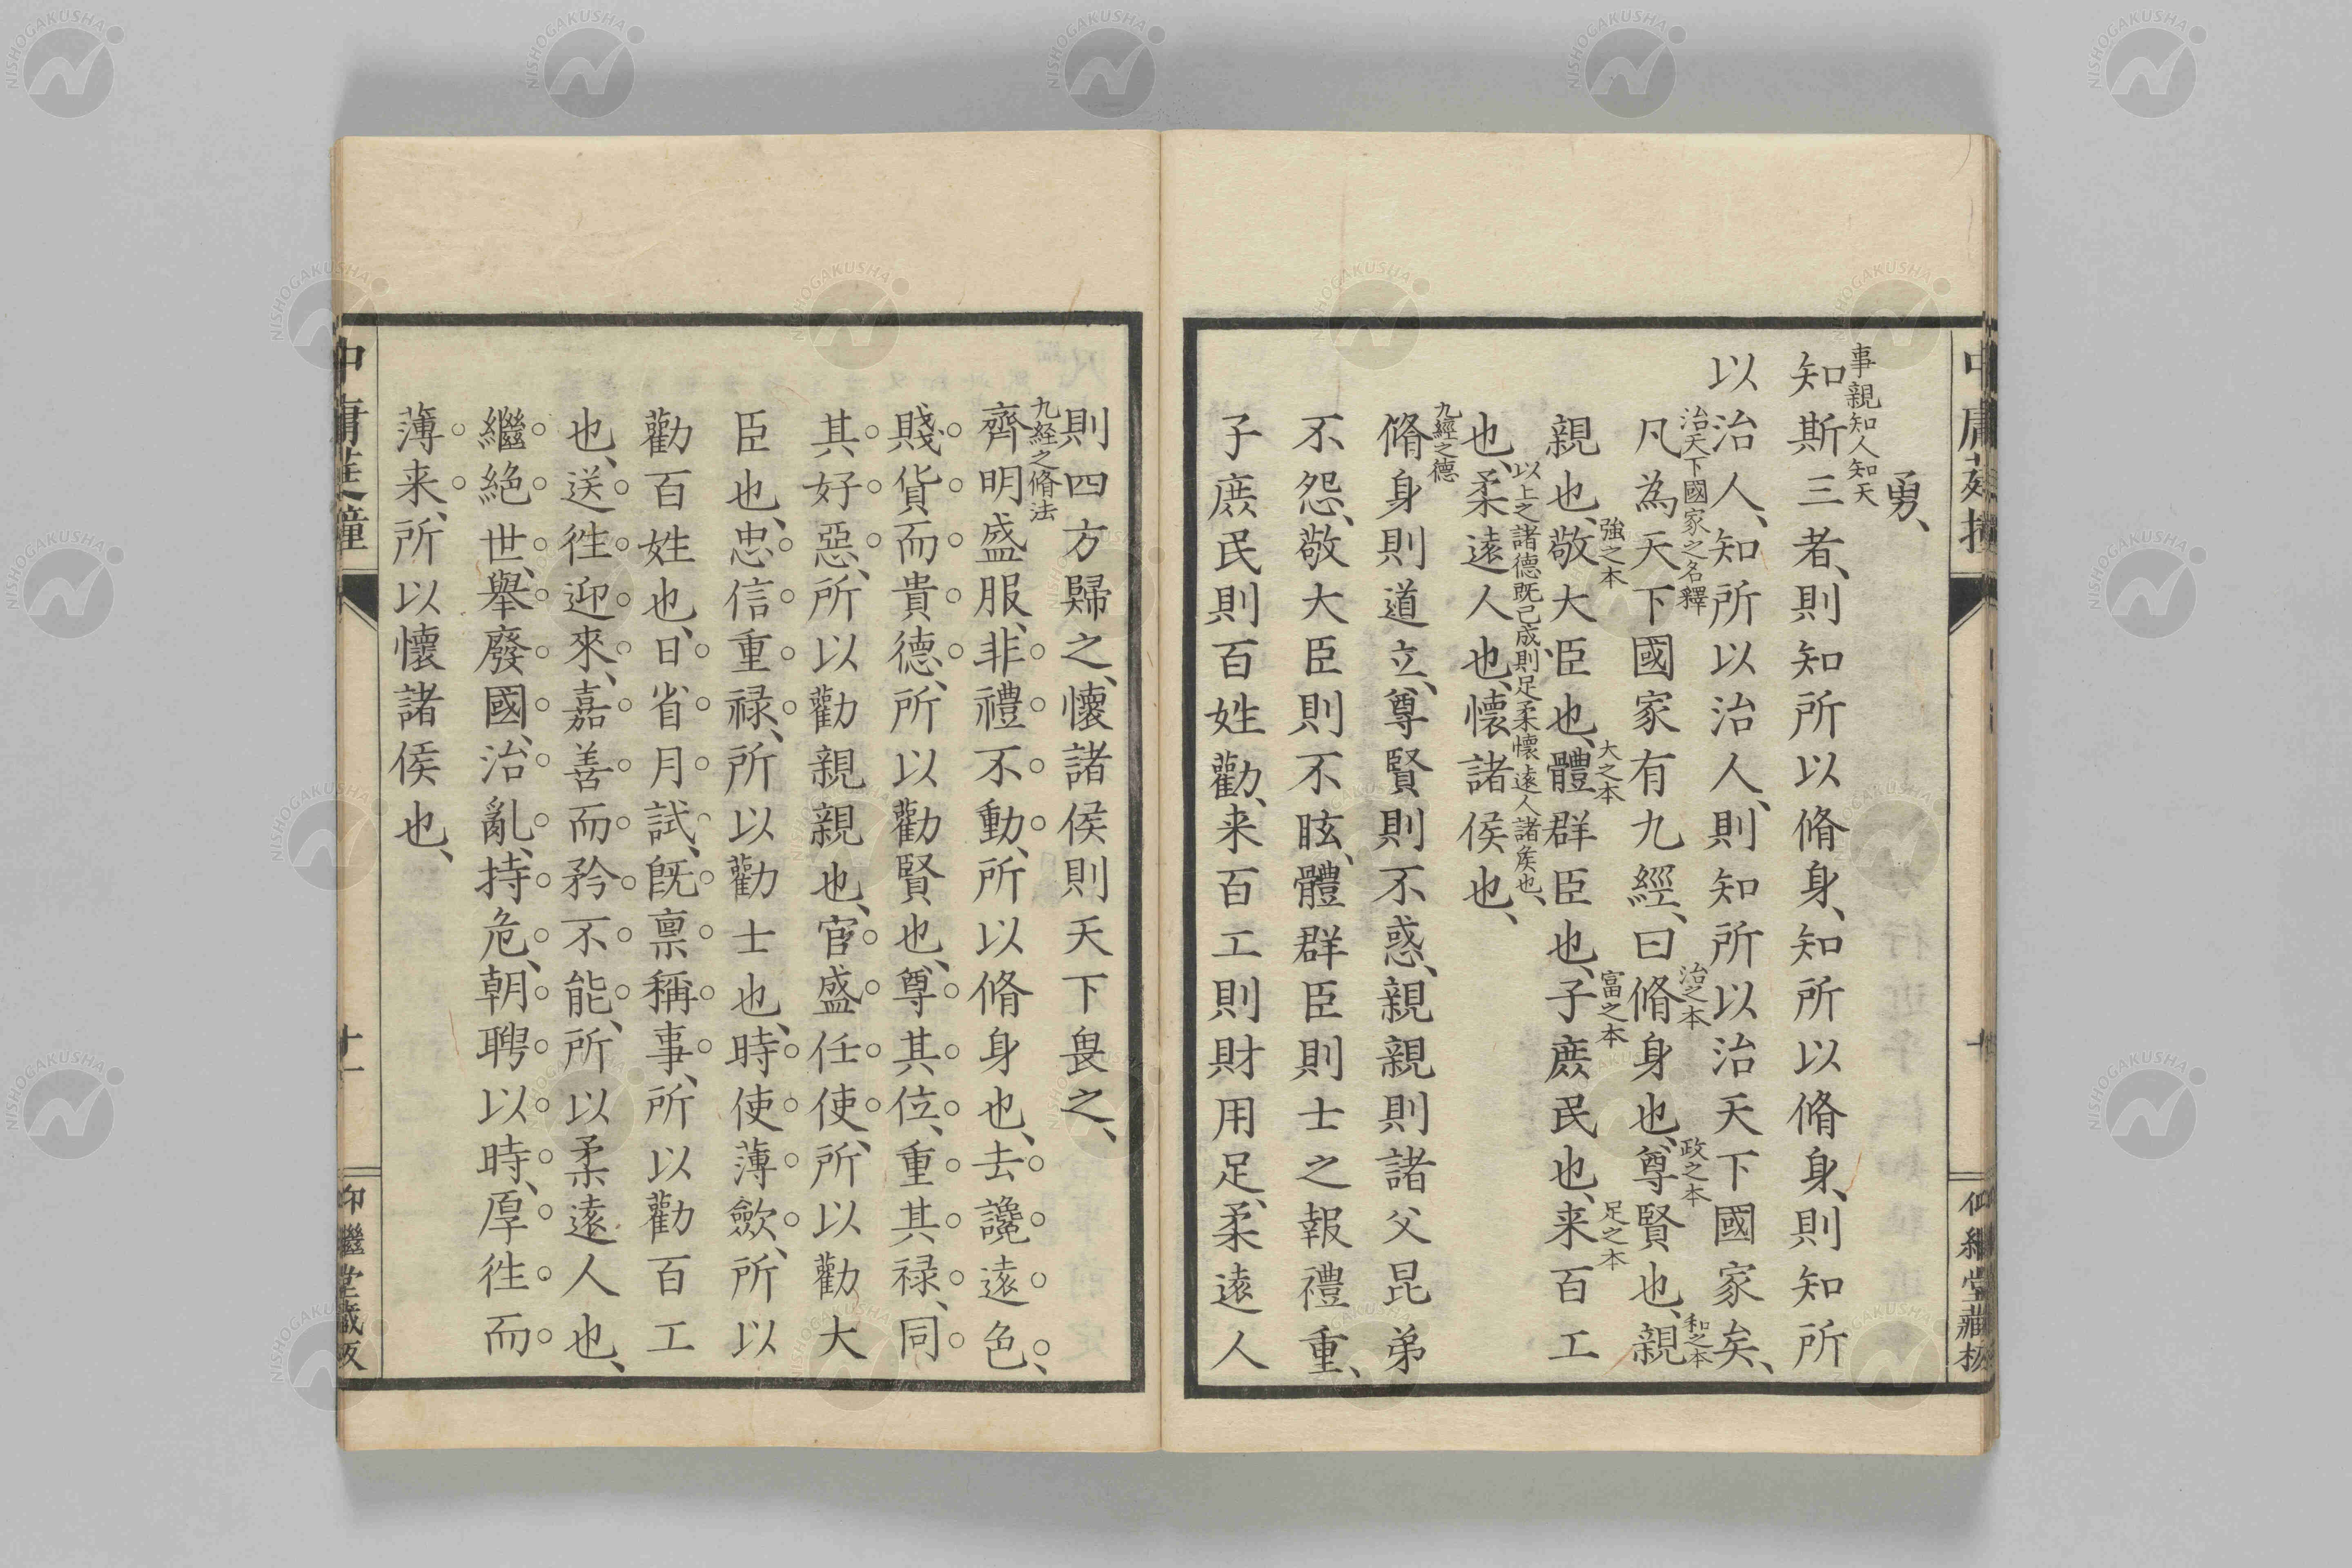 勇、
事親知人知天
知斯三者、則知所以脩身、知所以脩身、則知所
以治人、知所以治人、則知所以治天下國家矣、
治天下國家之名釋
凡為天下國家有九經、曰脩身也、尊賢也、親
治之本
政之本
和之本
親也、敬大臣也、體群臣也、子庶民也、来百工
強之本
大之本
富之本
足之本
也、柔遠人也、懷諸侯也、
以上之諸德既已成則足柔懷遠人諸矦也、
九經之德
脩身則道立、尊賢則不惑、親親則諸父昆弟
不怨、敬大臣則不眩、體群臣則士之報禮重、
子庶民則百姓勸、来百工則財用足、柔遠人
則四方歸之、懷諸侯則天下畏之、
九経之脩法
齊明盛服、非禮不動、所以脩身也、去讒遠色、
賤貨而貴德、所以勸賢也、尊其位、重其禄、同
其好惡、所以勸親親也、官盛任使、所以勸大
臣也、忠信重禄、所以勸士也、時使薄斂、所以
勸百姓也、日省月試、既禀稱事、所以勸百工
也、送徃迎來、嘉善而矜不能、所以柔遠人也、
繼絶世、舉廢國、治亂、持危、朝聘以時、厚徃而
薄来、所以懷諸侯也、
十一
NISHOGAKUSHA